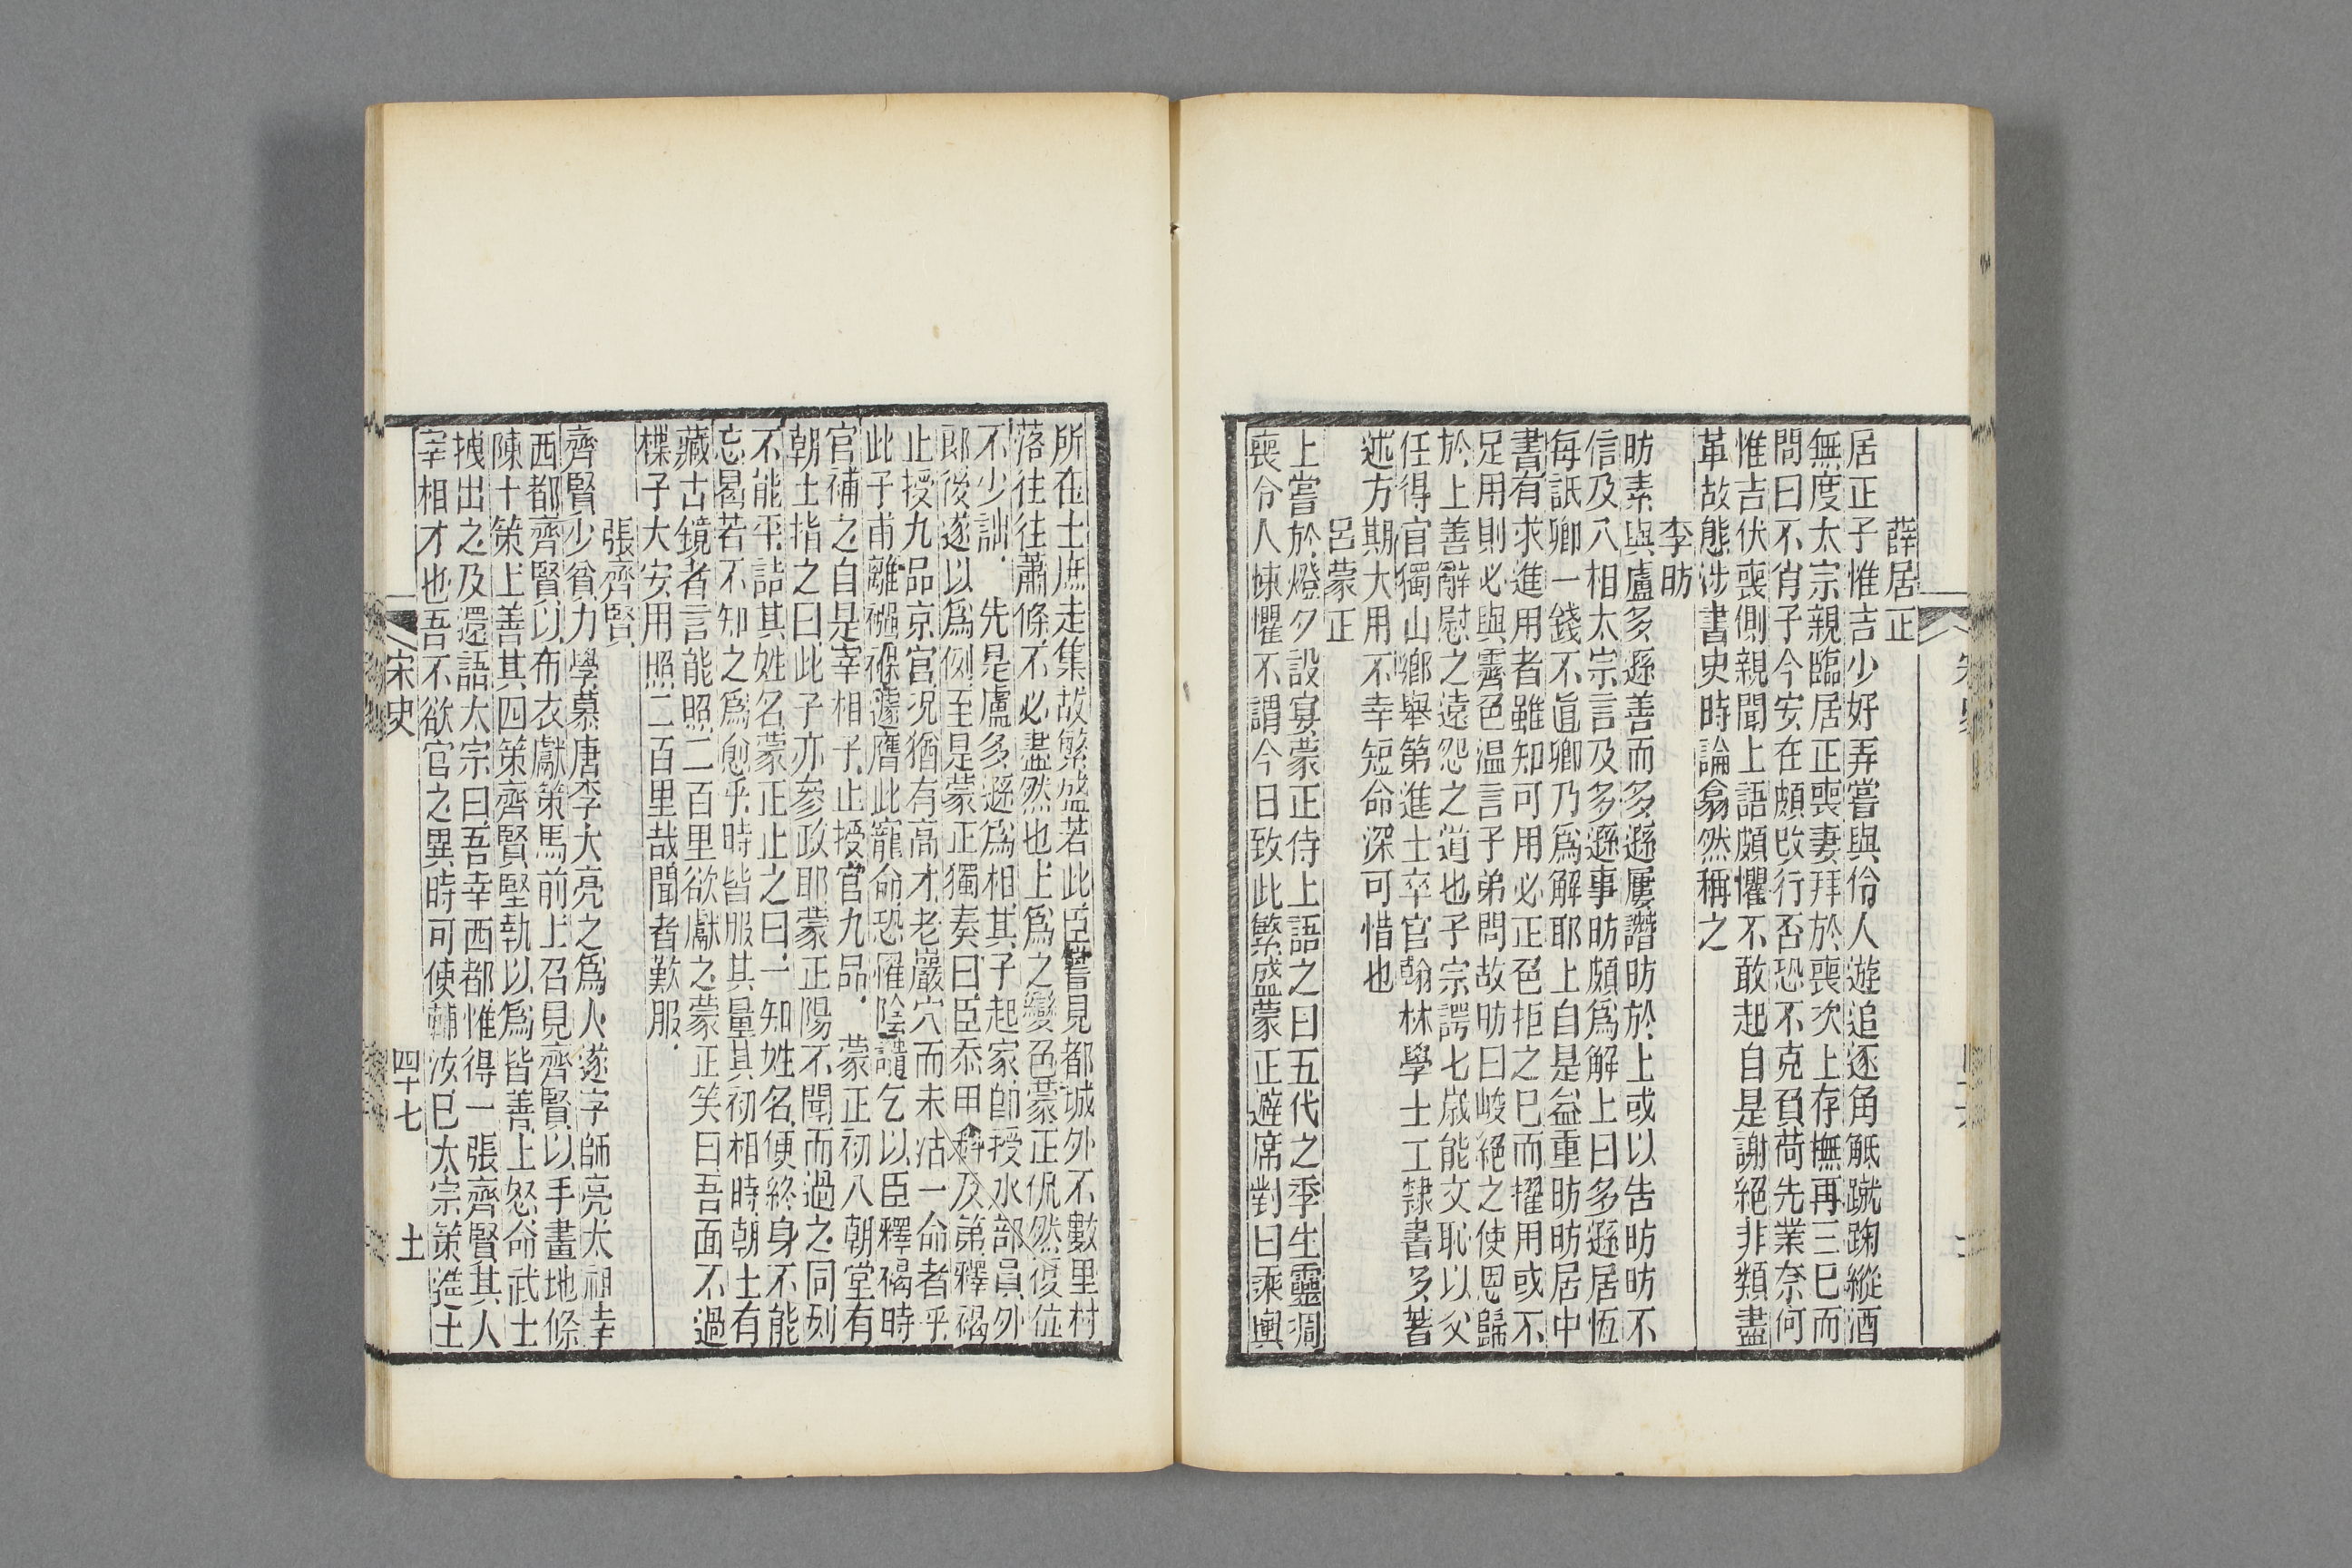 薛居正
居正子惟吉少好弄嘗與伶人遊追逐角觝蹴踘縱酒
無度太宗親臨居正喪妻拜於喪次上存撫再三巳而
問曰不肖子今安在頗改行否恐不克負荷先業奈何
惟吉伏喪側親聞上語頗懼不敢起自是謝絕非類盡
革故態涉書史時論翕然稱之
李昉
昉素與盧多遜善而多遜屢譖昉於上或以告昉昉不
信及入相太宗言及多遜事昉頗爲解上曰多遜居恆
每詆卿一錢不直卿乃爲解耶上自是益重昉昉居中
書有求進用者雖知可用必正色拒之巳而擢用或不
足用則必與霽色温言子弟問故昉曰峻絕之使恩歸
於上善辭慰之遠怨之道也子宗諤七歲能文恥以父
任得官獨山鄉舉第進士卒官翰林學士工隸書多著
述方期大用不幸短命深可惜也
呂蒙正
上嘗於燈夕設宴蒙正侍上語之曰五代之季生靈凋
喪令人悚懼不謂今日致此繁盛蒙正避席對曰乘輿
所在士庶走集故繁盛若此臣嘗見都城外不數里村
落往往蕭條不必盡然也上爲之變色蒙正侃然復位
不少詘 先是盧多遜爲相其子起家卽授水部員外
郎後遂以爲例至是蒙正獨奏曰臣忝甲科及第釋褐
止授九品京官况猶有高才老巖穴而未沾一命者乎
此子甫離襁褓遽膺此寵命恐罹陰譴乞以臣釋褐時
官補之自是宰相子止授官九品 蒙正初入朝堂有
朝士指之曰此子亦參政耶蒙正陽不聞而過之同列
不能平詰其姓名蒙正止之曰一知姓名便終身不能
忘曷若不知之爲愈乎時皆服其量其初相時朝士有
藏古鏡者言能照二百里欲獻之蒙正笑曰吾面不過
楪子大安用照二百里哉聞者歎服
張齊賢
齊賢少貧力學慕唐李大亮之爲人遂字師亮太祖幸
西都齊賢以布衣獻策馬前上召見齊賢以手畫地條
陳十策上善其四策齊賢堅執以爲皆善上怒命武士
拽出之及還語太宗曰吾幸西都惟得一張齊賢其人
宰相才也吾不欲官之異時可使輔汝巳太宗策進士
宋史 四十七 士